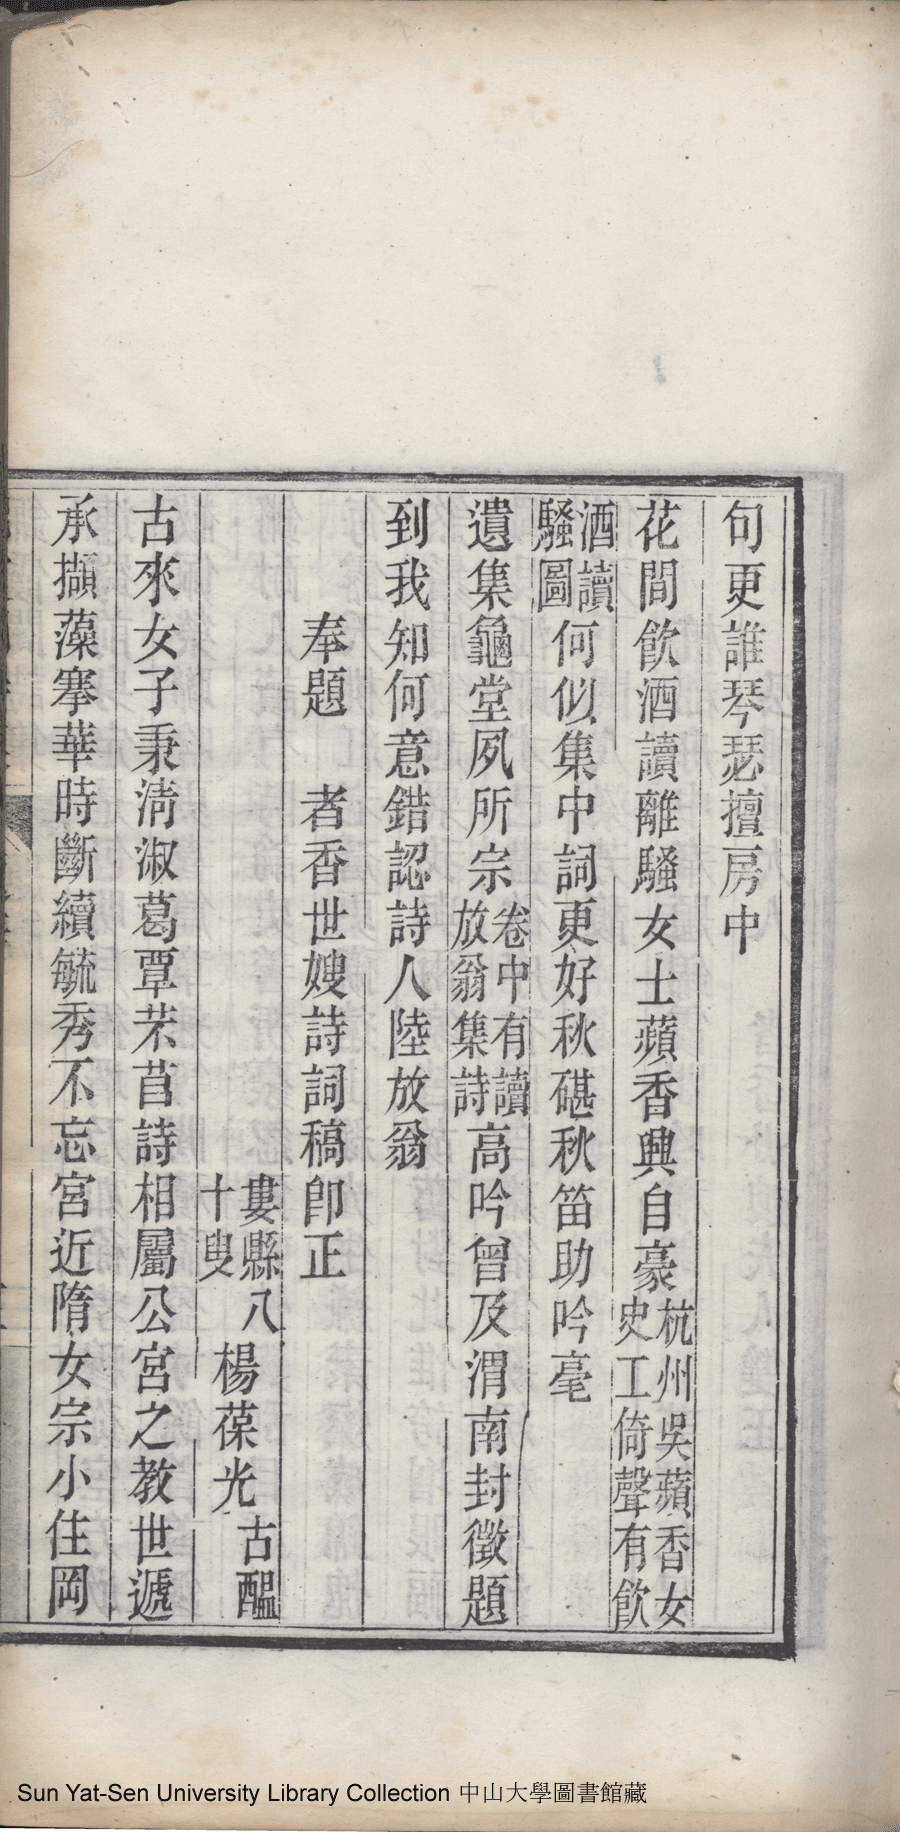 句更誰琴瑟擅房中
花間飮酒讀離騷女士蘋香興自豪杭州吳蘋香女史工倚聲有飮
酒讀騷圖何似集中詞更好秋碪秋笛助吟毫
遺集龜堂夙所宗卷中有讀放翁集詩高吟曾及渭南封徵題
到我知何意錯認詩人陸放翁
奉題　者香世嫂詩詞稿卽正
婁縣八十叟楊葆光古醖
古來女子秉淸淑葛覃芣苢詩相屬公宮之教世遞
承擷藻搴華時斷續毓秀不忘宮近隋女宗小住岡
Sun Yat-Sen University Library Collection 中山大學圖書館藏